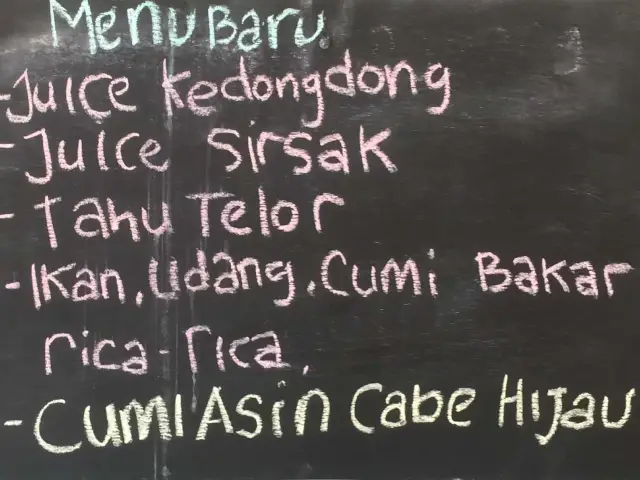 Menu Baru.
-Juice Kedongdong
-Juice Sirsak
-Tahu Telor
-Ikan, Udang, Cumi Bakar
rica-rica,
-Cumi Asin Cabe Hijau